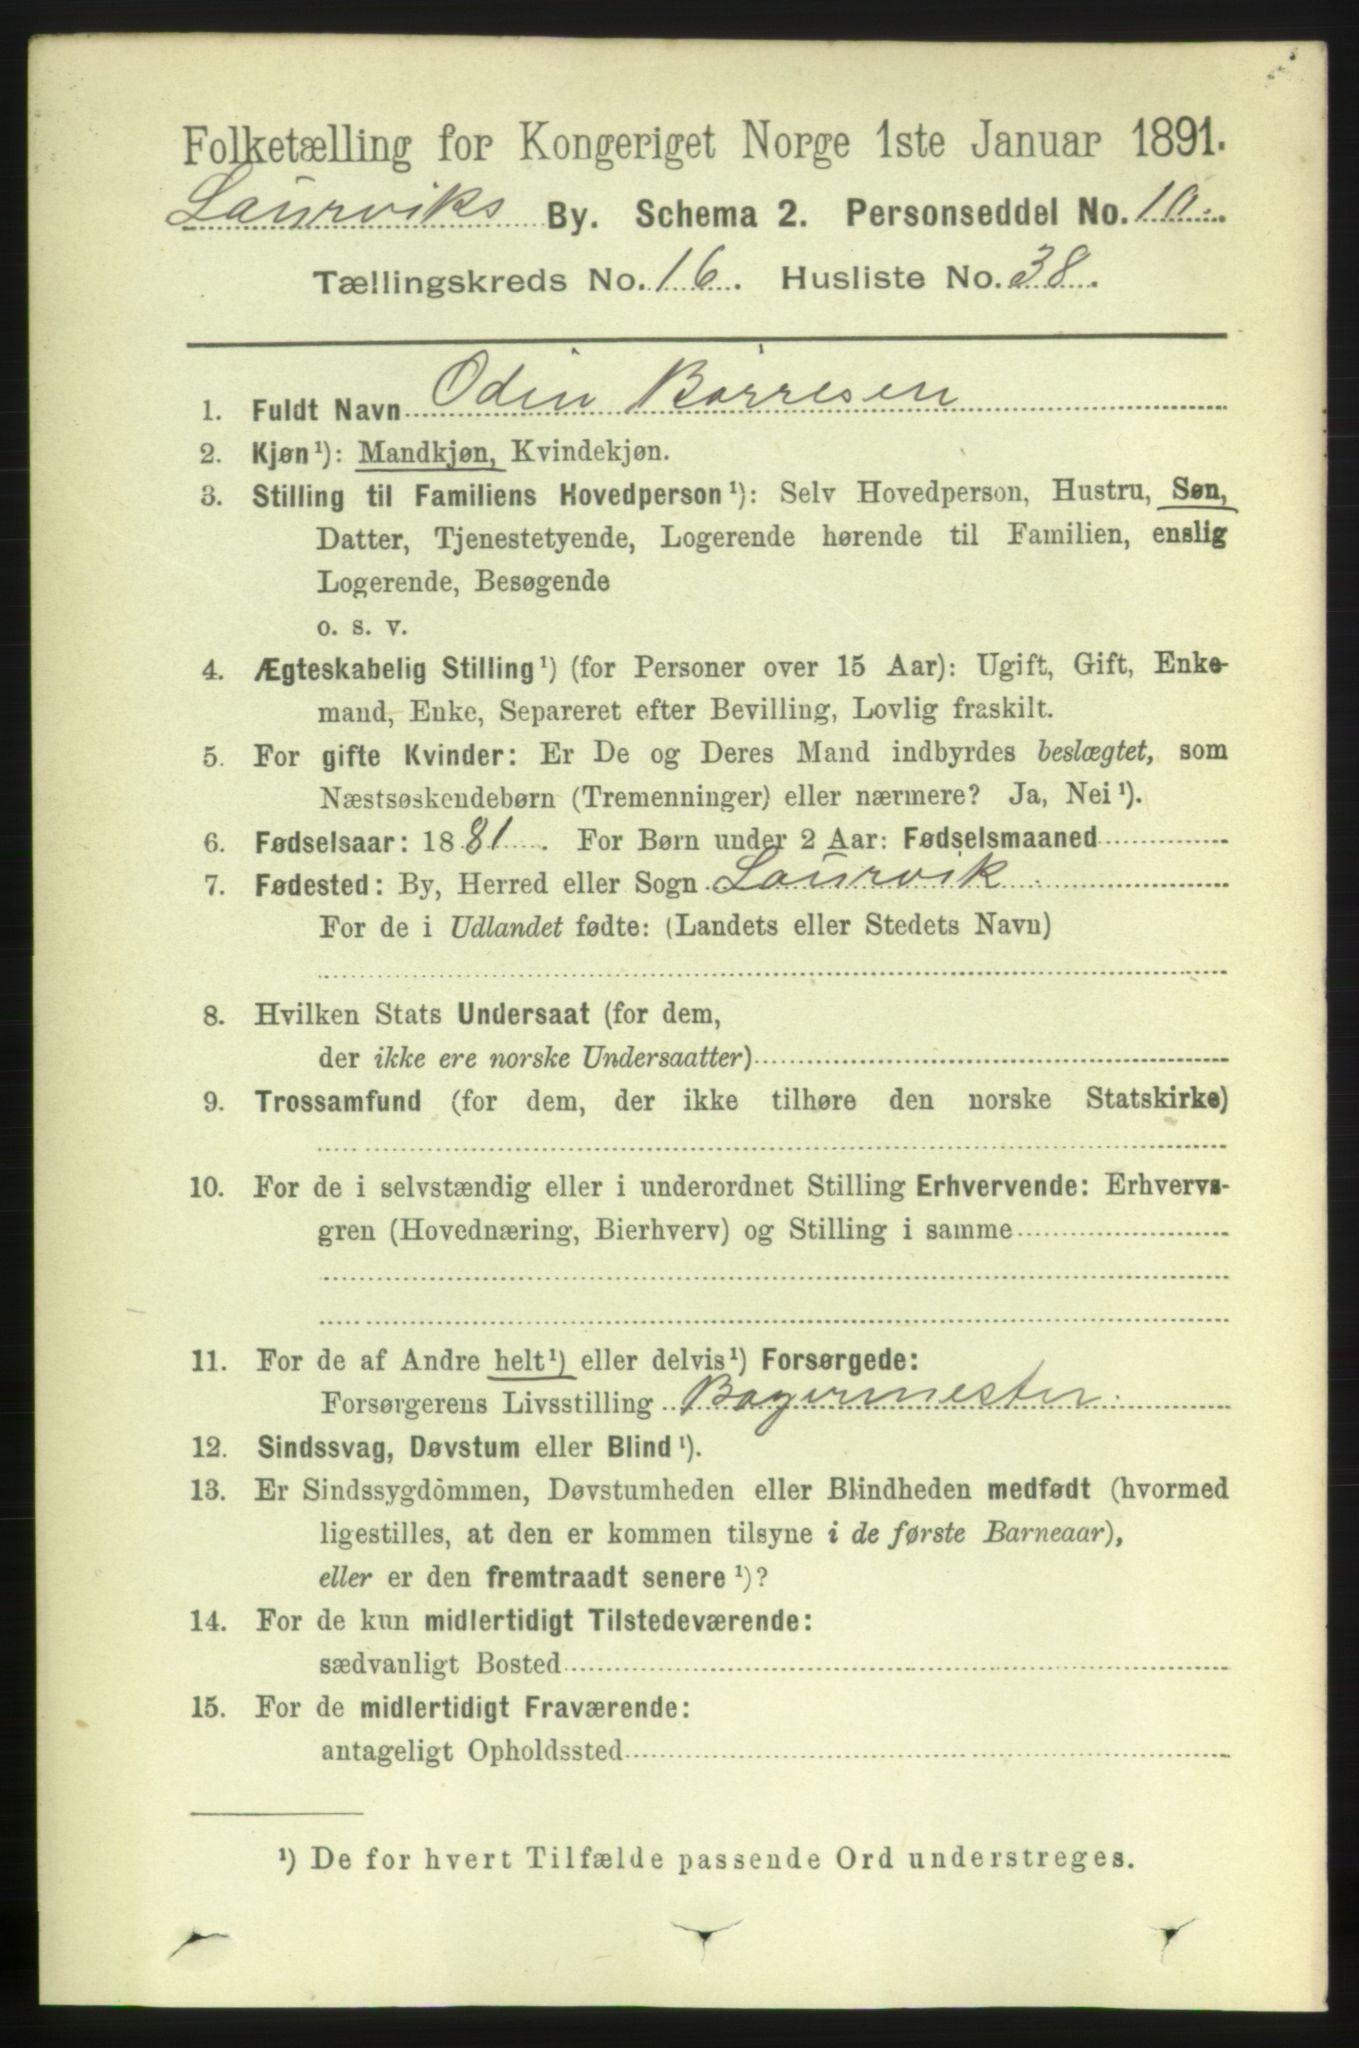 Folketælling for Kongeriget Norge 1ste Januar 1891.
Laurviks By. Schema 2. Personseddel No. 10.
Tællingskreds No. 16. Husliste No. 38.
1. Fuldt Navn Odin Børresen
2. Kjøn¹): Mandkjøn, Kvindekjøn.
3. Stilling til Familiens Hovedperson¹): Selv Hovedperson, Hustru, Søn,
Datter, Tjenestetyende, Logerende hørende til Familien, enslig
Logerende, Besøgende
o. s. v.
4. Ægteskabelig Stilling¹) (for Personer over 15 Aar): Ugift, Gift, Enke-
mand, Enke, Separeret efter Bevilling, Lovlig fraskilt.
5. For gifte Kvinder: Er De og Deres Mand indbyrdes beslægtet, som
Næstsøskendebørn (Tremenninger) eller nærmere? Ja, Nei¹).
6. Fødselsaar: 1881. For Børn under 2 Aar: Fødselsmaaned
7. Fødested: By, Herred eller Sogn Laurvik.
For de i Udlandet fødte: (Landets eller Stedets Navn)
8. Hvilken Stats Undersaat (for dem,
der ikke ere norske Undersaatter)
9. Trossamfund (for dem, der ikke tilhøre den norske Statskirke)
10. For de i selvstændig eller i underordnet Stilling Erhvervende: Erhvervs-
gren (Hovednæring, Bierhverv) og Stilling i samme
11. For de af Andre helt¹) eller delvis¹) Forsørgede:
Forsørgerens Livsstilling Bagermester.
12. Sindssvag, Døvstum eller Blind¹).
13. Er Sindssygdommen, Døvstumheden eller Blindheden medfødt (hvormed
ligestilles, at den er kommen tilsyne i de første Barneaar),
eller er den fremtraadt senere¹)?
14. For de kun midlertidigt Tilstedeværende:
sædvanligt Bosted
15. For de midlertidigt Fraværende:
antageligt Opholdssted
¹) De for hvert Tilfælde passende Ord understreges.